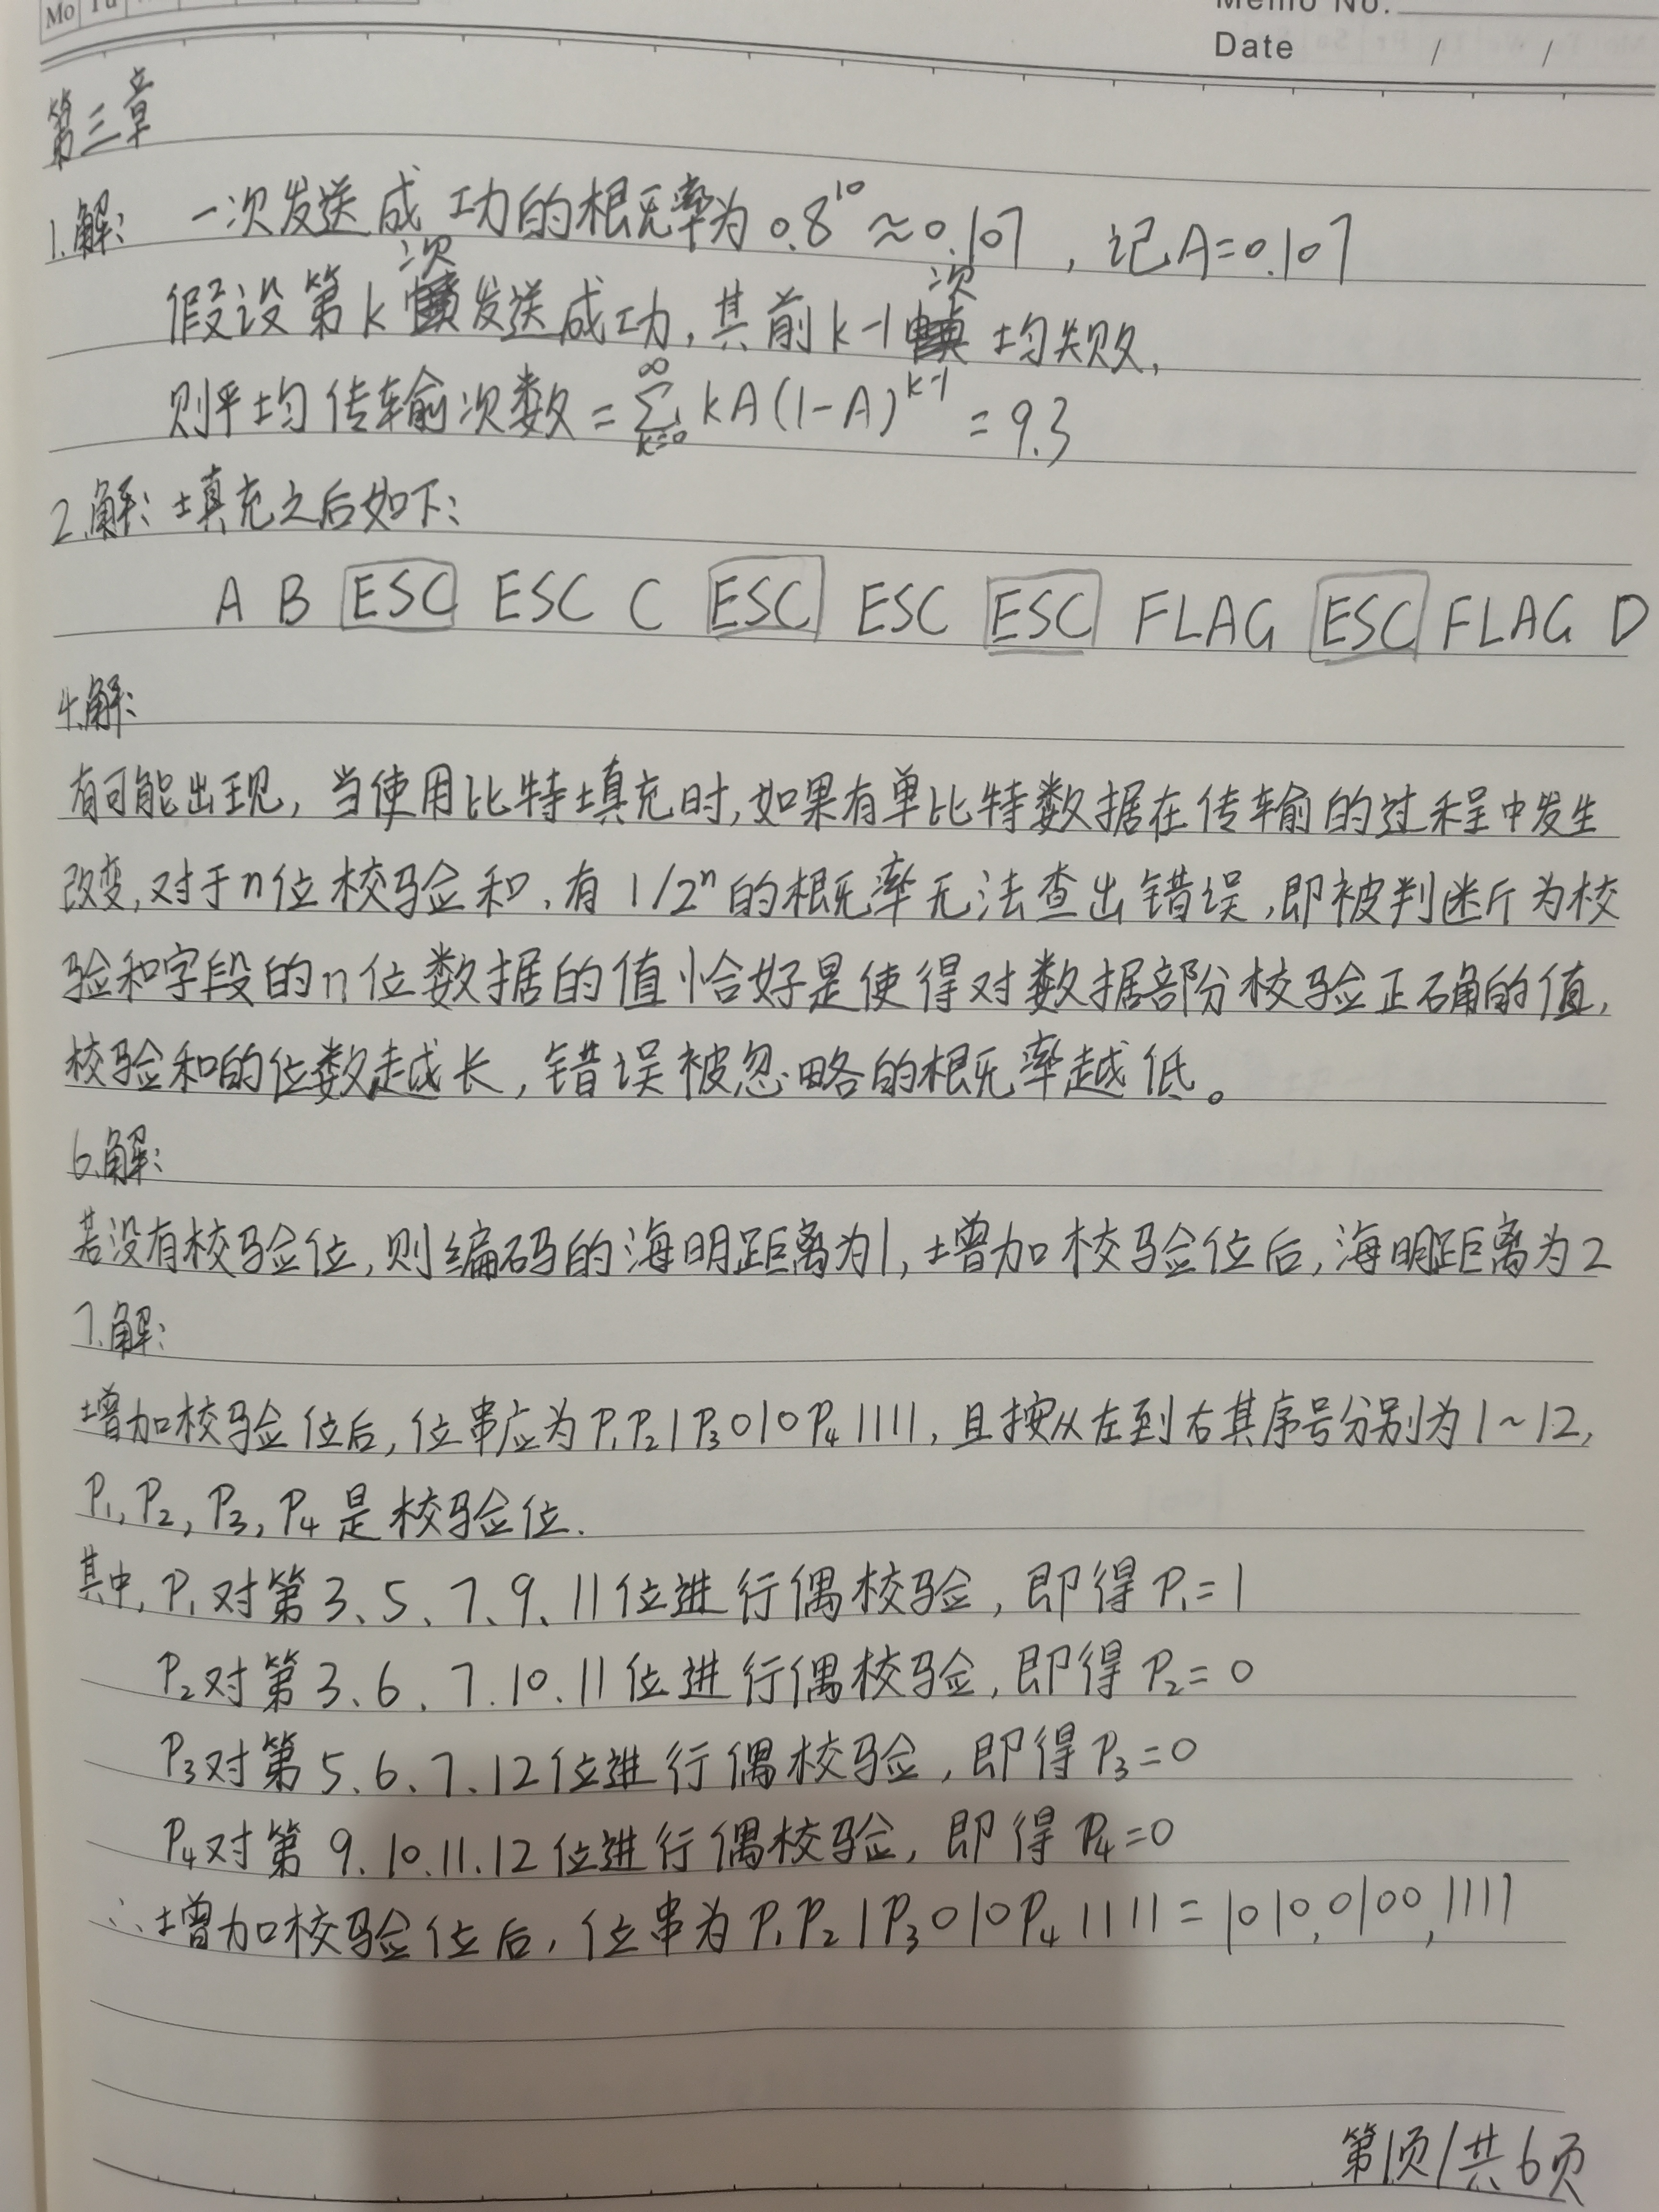 Mo Tu
Memo No.
Date / /
第三章
1.解: 一次发送成功的概率为0.8^10≈0.107, 记A=0.107
假设第k次发送成功,其前k-1次均失败,
则平均传输次数=∑_{k=0}^{∞} kA(1-A)^{k-1} =9.3
2.解: 填充之后如下:
A B ESC ESC C ESC ESC ESC FLAG ESC FLAG D
4.解:
有可能出现,当使用比特填充时,如果有单比特数据在传输的过程中发生
改变,对于n位校验和,有1/2^n的概率无法查出错误,即被判断为校
验和字段的n位数据的值恰好是使得对数据部分校验正确的值,
校验和的位数越长,错误被忽略的概率越低。
6.解:
若没有校验位,则编码的海明距离为1,增加校验位后,海明距离为2
7.解:
增加校验位后,位串应为P₁P₂1P₃010P₄1111,且按从左到右其序号分别为1~12,
P₁,P₂,P₃,P₄是校验位.
其中,P₁对第3、5、7、9、11位进行偶校验,即得P₁=1
P₂对第3、6、7.10.11位进行偶校验,即得P₂=0
P₃对第5、6、7、12位进行偶校验,即得P₃=0
P₄对第9.10.11.12位进行偶校验,即得P₄=0
∴增加校验位后,位串为P₁P₂1P₃010P₄1111=1010,0100,1111
第1页/共6页